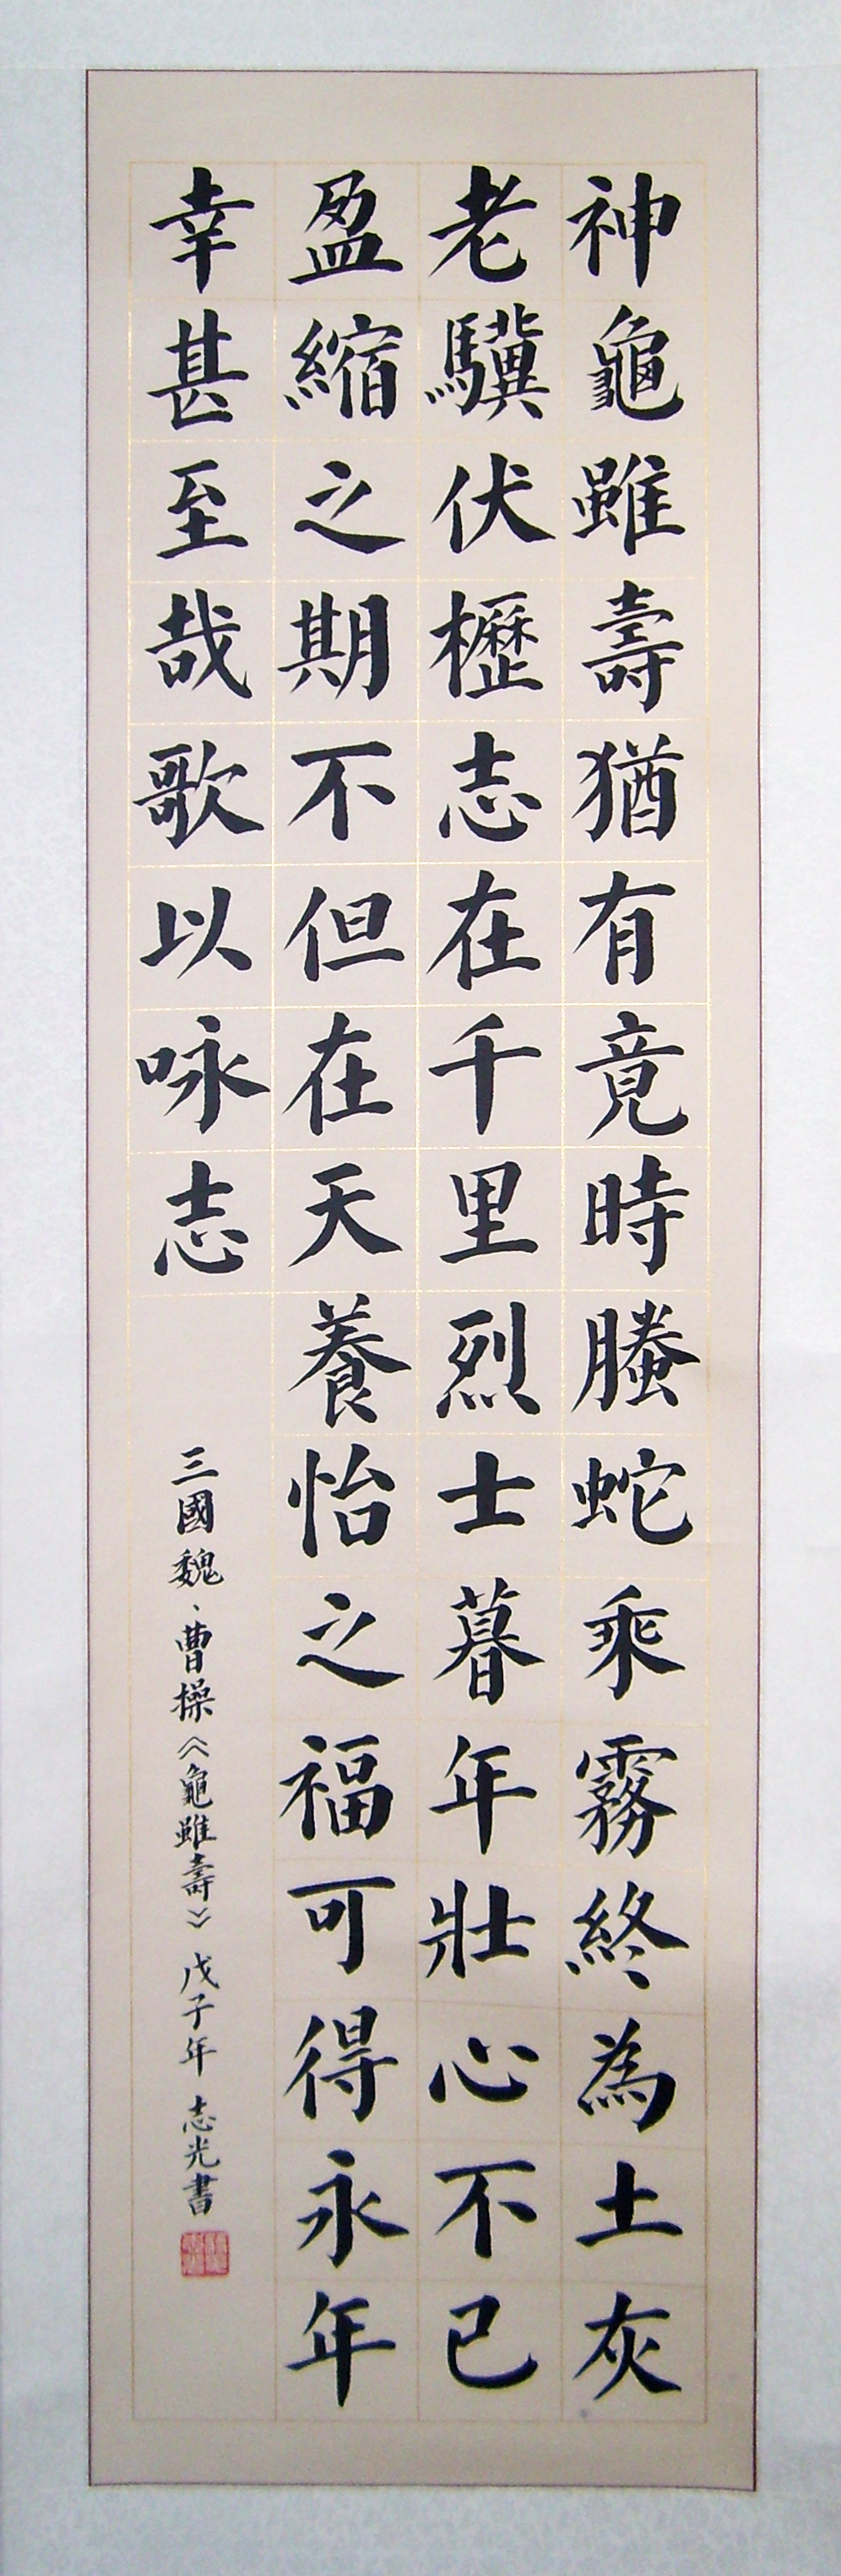 神龜雖壽猶有竟時螣蛇乘霧終為土灰
老驥伏櫪志在千里烈士暮年壯心不已
盈縮之期不但在天養怡之福可得永年
幸甚至哉歌以咏志
三國魏、曹操《龜雖壽》戊子年 志光書